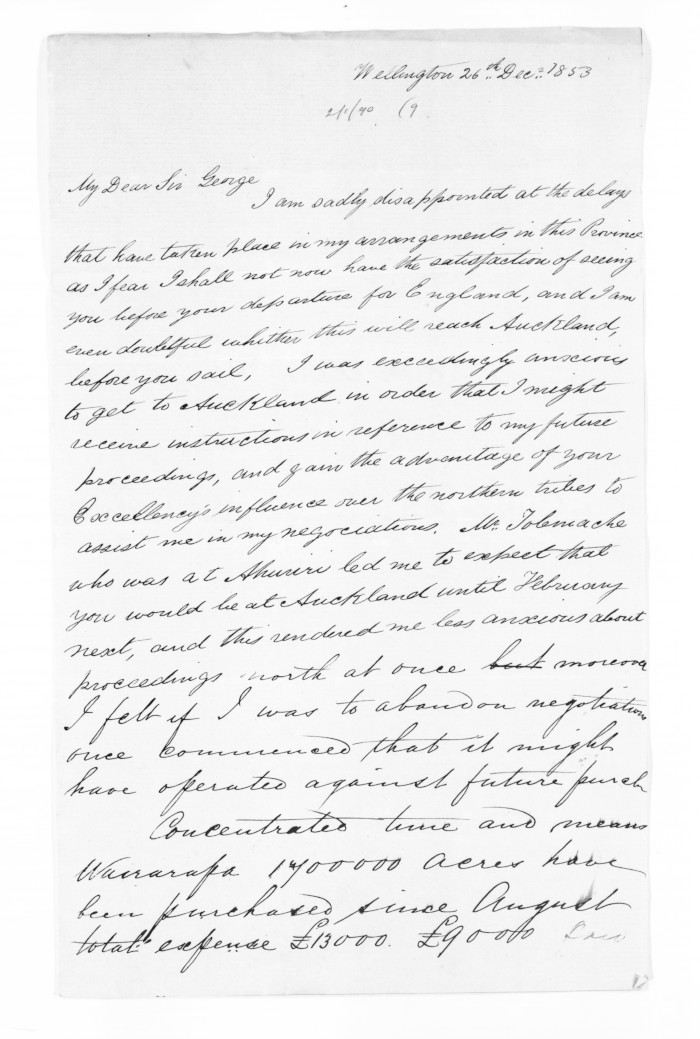 Wellington 26th Decr 1853
2/1/90 (9
My Dear Sir George
I am sadly disappointed at the delays
that have taken place in my arrangements in this Province
as I fear I shall not now have the satisfaction of seeing
you before your departure for England, and I am
even doubtful whither this will reach Auckland,
before you sail, I was exceedingly anxious
to get to Auckland in order that I might
receive instructions in reference to my future
proceedings, and gain the advantage of your
Excellency's influence over the northern tribes to
assist me in my negociations. Mr. Tolemache
who was at Ahuriri led me to expect that
you would be at Auckland until February
next, and this rendered me less anxious about
proceedings north at once but moreover
I felt if I was to abandon negotiations
once commenced that it might
have operated against future purch
Concentrated time and means
Wairarapa 1700000 acres have
been purchased since August
total expense £13000. £90000
12